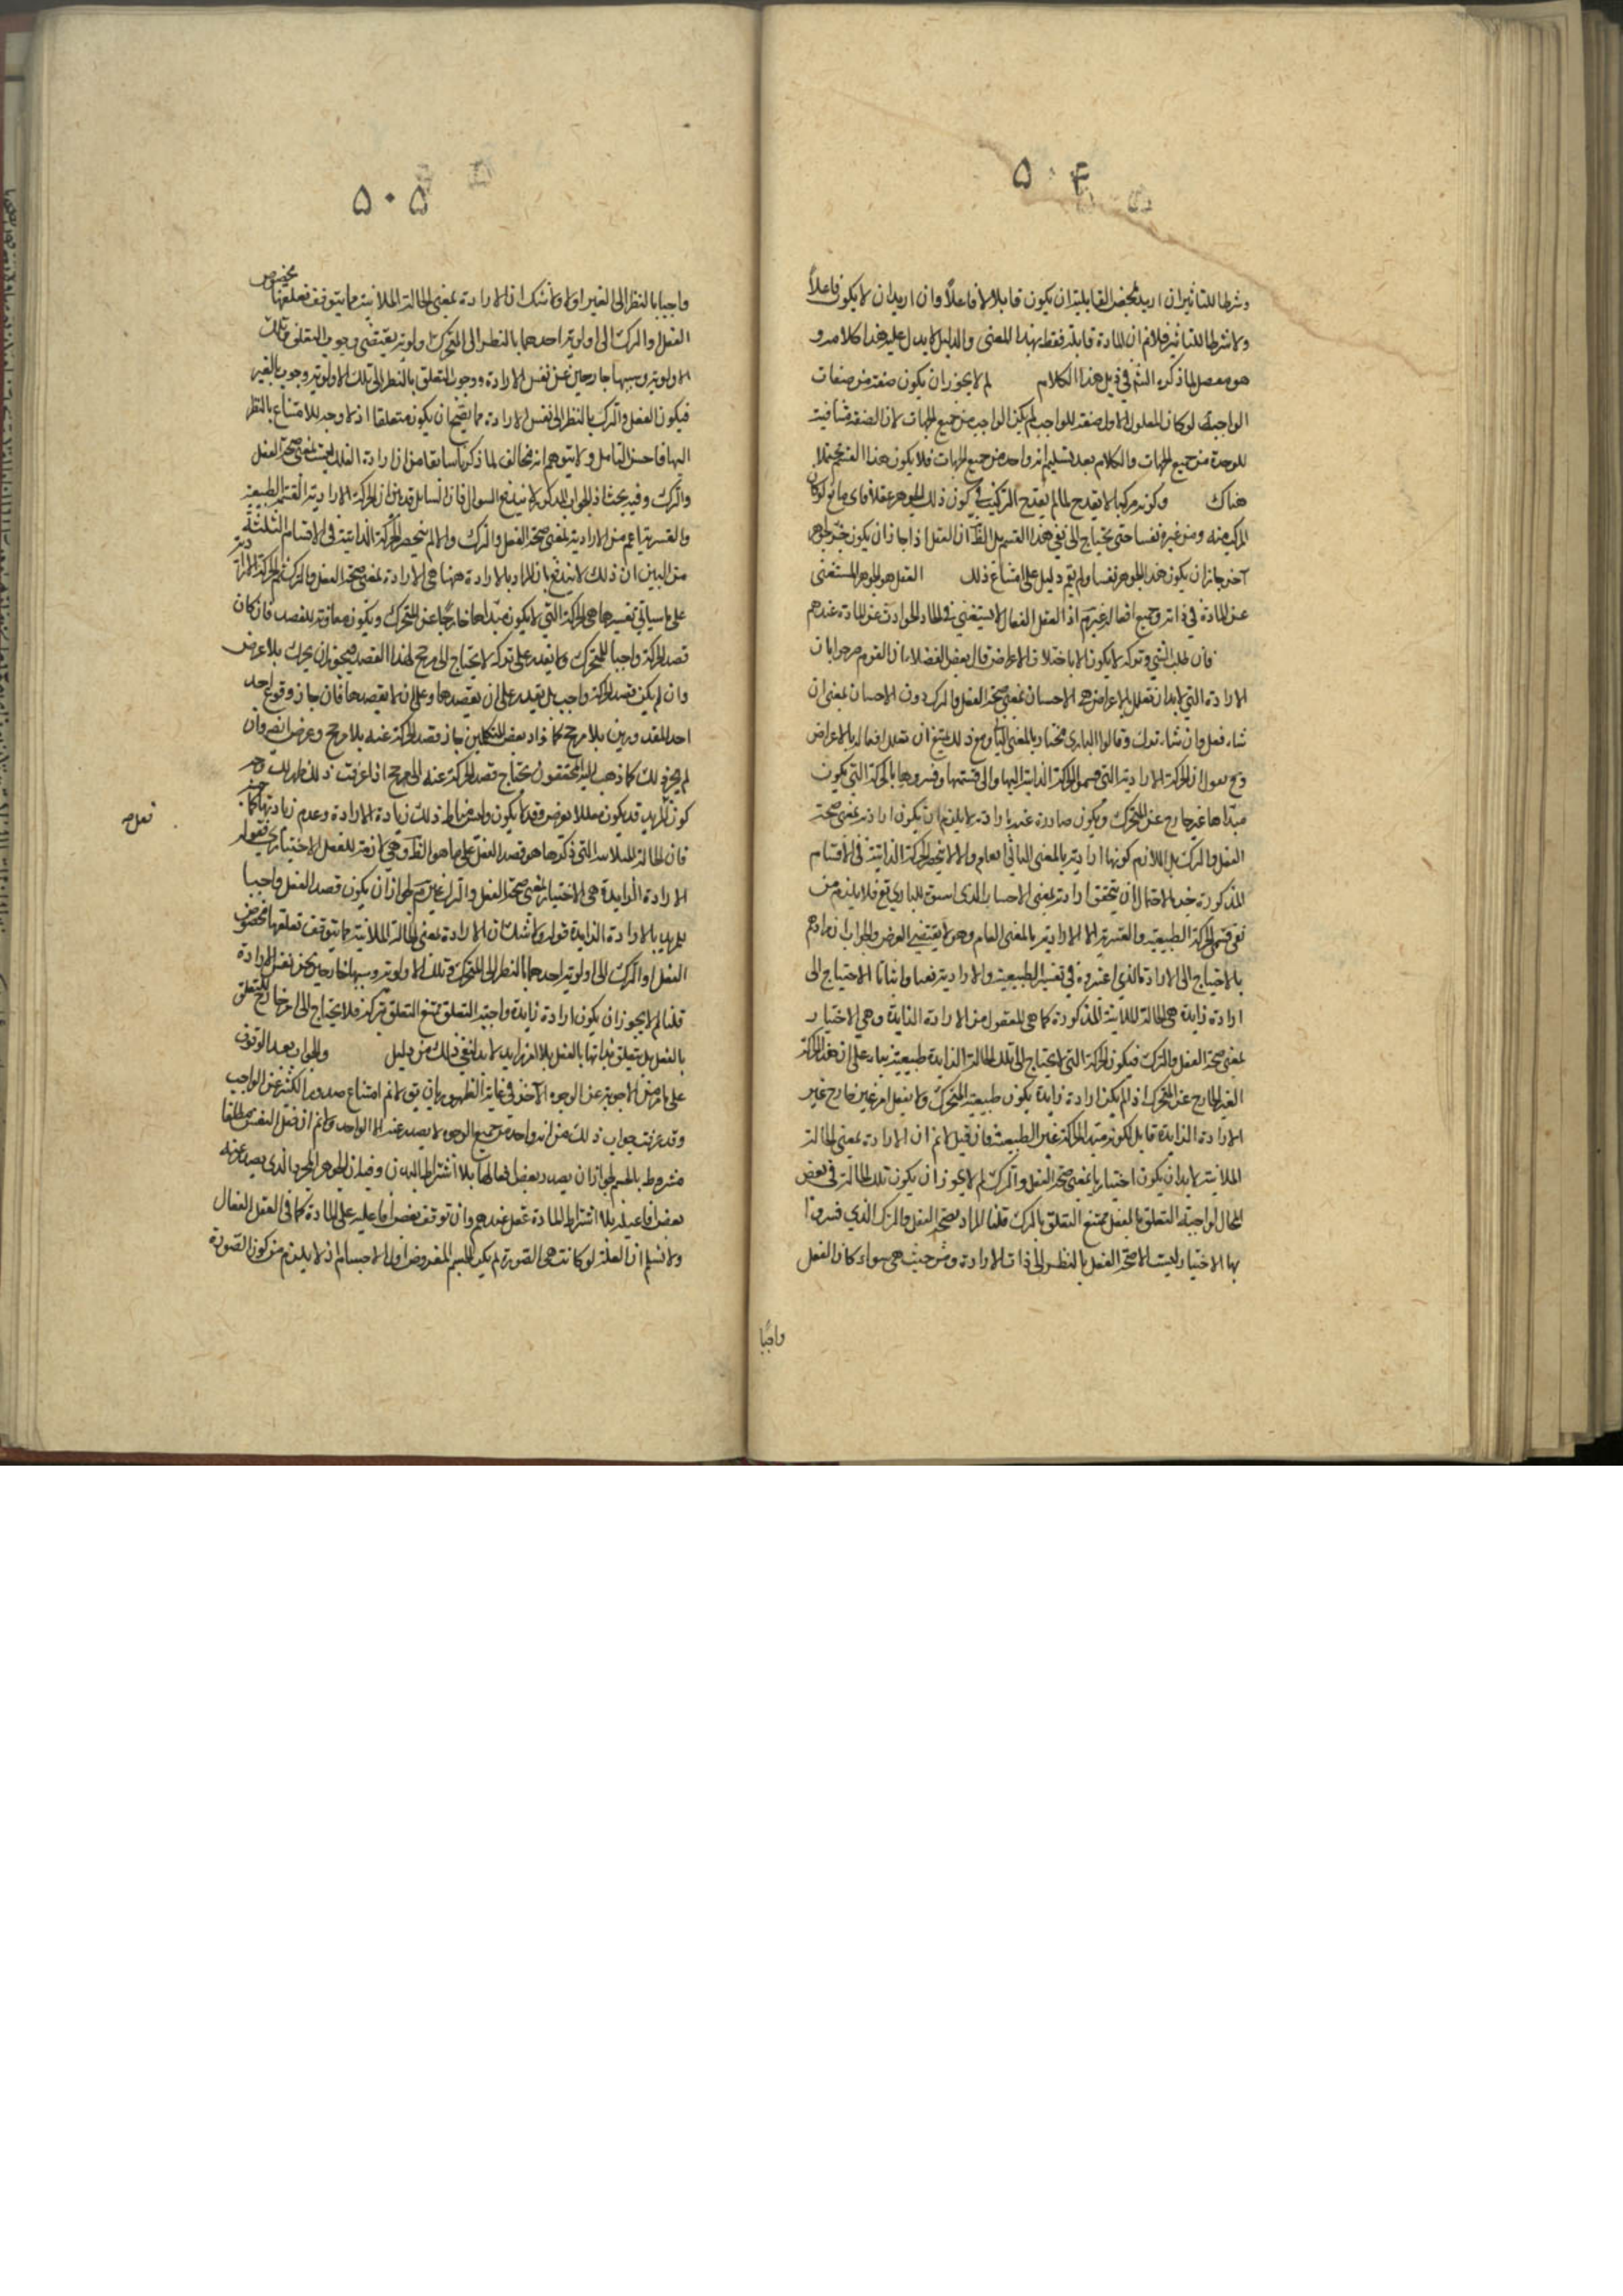 ۵۰۴
وشرطا للتاثير ان اريد بمحض القابلية ان يكون قابلا لا فاعلاً وان اريد ان لا يكون فاعلاً
ولا شرطا للتاثير فلانم ان المادة قابلة فقط بهذا المعنى والدليل لا يدل عليه هذا كلامه و
هو مفصل لما ذكره الشم في ذيل هذا الكلام لم لا يجوز ان يكون صفة من صفات
الواجب لو كان المعلول الاول صفة للواجب لم يكن الواجب من جميع الجهات لان الصفة منافية
للوحدة من جميع الجهات والكلام بعد تسليم انه واحد من جميع الجهات فلا يكون هذا القسم محتملا
هناك وكونه مركبا لا يقدح لما لم يقدح التركيب في كون ذلك الجوهر عقلا فاى مانع لو كان
المركب منه ومن غيره نفسا حتى يحتاج الى نفي هذا القسم بل الظ ان العقل اذا جاز ان يكون جزء جوهر
آخر جاز ان يكون هذا الجوهر نفسا ولم يقم دليل على امتناع ذلك العقل هو الجوهر المستغنى
عن المادة في ذاته وجميع افعاله غير مم اذ العقل الفعال لا يستغنى في ايجاد الحوادث عن المادة عندهم
فان طلب الشي وتركه لا يكون الا باختلاف الاعراض قال بعض الفضلاء ان القوم صرحوا بان
الارادة التي لابد ان تعلل بالاعراض هي الاحسان بمعنى صحة الفعل والترك دون الاحسان بمعنى ان
شاء فعل وان شاء ترك وقالوا البارى مختار بالمعنى الثانى ومع ذلك يمتنع ان تعلل افعاله بالاعراض
وح نقول ان الحركة الارادية التي قسموا الحركة الذاتية اليها والى قسيمتها وفسروها بالحركة التي يكون
مبدأها غير خارج عن المتحرك ويكون صادرة عنه بارادته لا يلزم ان يكون ارادته بمعنى صحة
الفعل والترك بل اللازم كونها ارادية بالمعنى الثاني العام والا لا تنحصر الحركة الذاتية في الاقسام
المذكورة
نفى قسمى الحركة الطبيعية والقسرية الا الارادية بالمعنى العام وهو لا يقتضي العرض والجواب ان مرادهم
بالاحتياج الى الارادة الذي اعتبروه في تفسير الطبيعية والارادية نفيا واثباتا الاحتياج الى
ارادة زايدة هي الحالة الملانية المذكورة كما هي المعقول من الارادة الزايدة وهي الاختيار
بمعنى صحة الفعل والترك فيكون الحركة التي لا يحتاج الى تلك الحالة الزايدة طبيعية بناء على ان هذه الحركة
الغير الخارج عن المتحرك اذا لم يكن ارادة زايدة يكون طبيعية المتحرك ولا يفعل امر غير خارج غير
الارادة الزايدة قابل لكونه مبدا لحركة غير الطبيعية فان قيل لانم ان الارادة بمعنى الحالة
الملانية لابد ان يكون اختياريا بمعنى صحة الفعل والترك لم لا يجوز ان يكون تلك الحالة في بعض
المحال واجبة التعلق بالفعل ممتنع التعلق بالترك قلنا المراد بصحة الفعل والترك الذي فسروا
بها الاختيار ليست الا صحة الفعل بالنظر الى ذات الارادة ومن حيث هي سواء كان الفعل
واجبا
۵۰۵
واجبا بالنظر الى الغير اولا ولا شك ان الارادة بمعنى الحالة الملانية مما يتوقف تعلقها بخصوص
الفعل او الترك الى اولوية احدهما بالنظر الى المتحرك واولوية يقتضى وجوب التعلق تلك
الاولوية وسببها خارجين عن نفس الارادة ووجوب التعلق بالنظر الى تلك الاولوية وجوب بالغير
فيكون الفعل والترك بالنظر الى نفس الارادة مما يصح ان يكون متعلقا اذ لا وجه للامتناع بالنظر
اليها فاحسن التامل ولا يتوهم انه مخالف لما ذكرنا سابقا من ان ارادة الفلك ليست بمعنى صحة الفعل
والترك وفيه بحث اذ الجواب المذكور لا يندفع السوال فان السايل قد بين ان الحركة الارادية القسم الطبيعية
والقسرية اعم من الارادية بمعنى صحة الفعل والترك والا لم ينحصر الحركة الذاتية في الاقسام الثلثة
من البين ان ذلك لا يندفع بان المراد بالارادة ههنا هي الارادة بمعنى صحة الفعل والترك
على ما سيأتي تفسيرها هي الحركة التي لا يكون مبدأها خارجا عن المتحرك ويكون معاونة للقصد فان كان
قصد الحركة واجبا للمتحرك ولا يقدر على تركه لا يحتاج الى مرجح لهذا القصد فيجوز ان يحرك بلا عرض
وان لم يكن قصد الحركة واجب بل يقدر على ان يقصدها وعلى ان لا يقصدها فان جاز وقوع احد
احد المقدورين بلا مرجح كما زاد بعض المتكلمين جاز قصد الحركة عنه بلا مرجح وعرض ايضا وان
لم يجز ذلك كما ذهب اليه المحققون يحتاج قصد الحركة عنه الى مرجح اذا عرفت ذلك ظهر لك وجه
كون المريد قد يكون معللا بعرض وقد لا يكون وليس مناط ذلك زيادة الارادة وعدم زيادتها كما
فان الحالة الملانية التي ذكرها هو قصد الفعل على ما هو الظ وهي لازمة للفعل الاختيارى فقوله
الارادة الزايدة هي الاختيار بمعنى صحة الفعل والترك غير مم لجواز ان يكون قصد الفعل واجبا
للمريد بالارادة الزايدة قوله ولا شك ان الارادة بمعنى الحالة الملانية مما يتوقف تعلقها بخصوص
الفعل او الترك الى اولوية احدهما بالنظر الى المتحرك وتلك الاولوية وسببها خارجين عن نفس الارادة
قلنا لم لا يجوز ان يكون ارادة زايدة واجبة التعلق ممتنع التعلق بتركه فلا يحتاج الى امر خارج للتعلق
بالفعل بل يتعلق بذاتها بالفعل بلا امر زايد لابد لنفي ذلك من دليل والجواب بعد الوقوف
على ما مر من الاجوبة عن الوجوه الآخر في غاية الظهور بان يق لانم امتناع صدور الكثير عن الواجب
وقد عرفت جواب ذلك من انه واحد من جميع الوجوه لا يصدر عنه الا الواحد ولانم ان فعل النفس مطلقا
مشروط بالجسم لجواز ان يصدر بعض افعالها بلا اشتراط البدن وفعل ان الجوهر المجرد الذى يصدر عنه
بعض افاعيله بلا اشتراط المادة عقل عندهم وان توقف بعض افاعيله على المادة كما في العقل الفعال
ولا نسلم ان العلة لو كانت هي الصورة لم يكن الجسم المفروض اول الاجسام اذ لا يلزم من كون الصورة